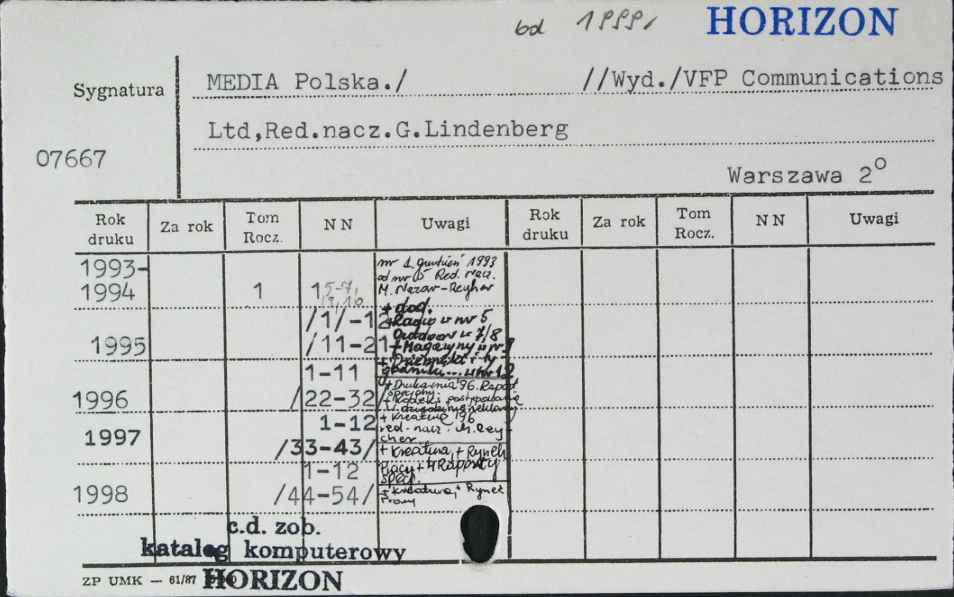 od 1999r HORIZON
Sygnatura MEDIA Polska./ //Wyd./VFP Communications
Ltd,Red.nacz.G.Lindenberg
07667
Warszawa 2°
Rok druku Za rok Tom Rocz. NN Uwagi Rok druku Za rok Tom Rocz. NN Uwagi
1993- nr 1 grudzień 1993
od nr 5 Red. nacz.
1994 1 1 M. Nazar-Reyher
+ dod.
/1/-12 +Radio w nr 5
Outdoor w 7/8
1995 /11-21 +Magazyny w nr
1-11
1996 /22-32/ +Drukarnia '96. Raport
1-12 + Kreatura '96
1997 red. nacz. M. Rey-
cher
/33-43/ + Kreatura, + Rynek
1-12 Prasy + 4 Raporty
spec.
1998 /44-54/ + Kreatura, + Rynek
Prasy
c.d. zob.
katalog komputerowy
ZP UMK — 61/87 HORIZON